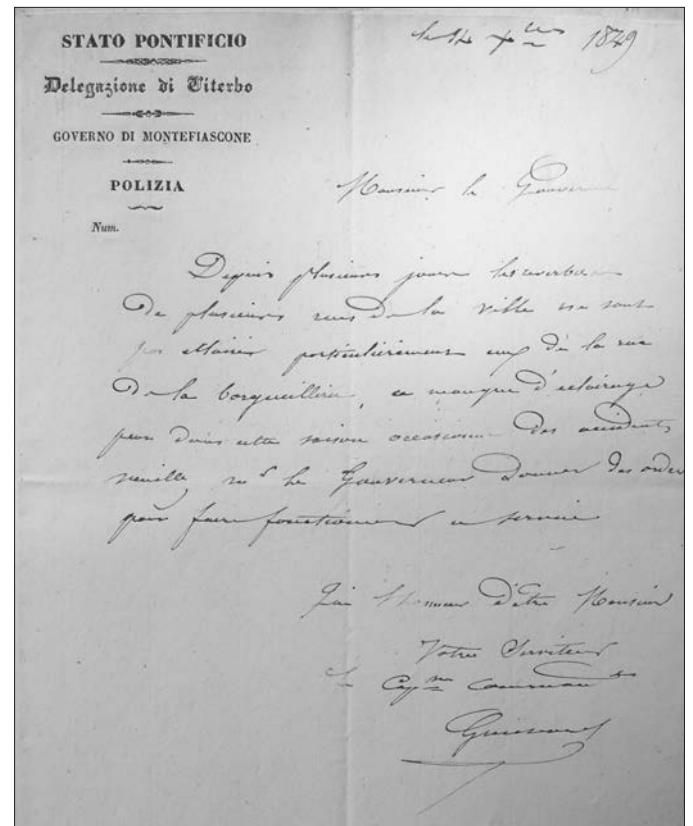 STATO PONTIFICIO
Delegazione di Viterbo
GOVERNO DI MONTEFIASCONE
POLIZIA
Num.
le 14 Xbre 1849
Monsieur le Gouverneur
Depuis plusieurs jours les reverberes
De plusieurs rues De la ville ne sont
pas particulièrement ceux De la rue
De la, ce manque D'eclairage
peux Dans cette saison occasionner Des accidents
veuille mr le Gouverneur Donner Des ordres
pour faire fonctionner ce service
J'ai l'honneur D'être Monsieur
Votre Serviteur
le Capne Commandt